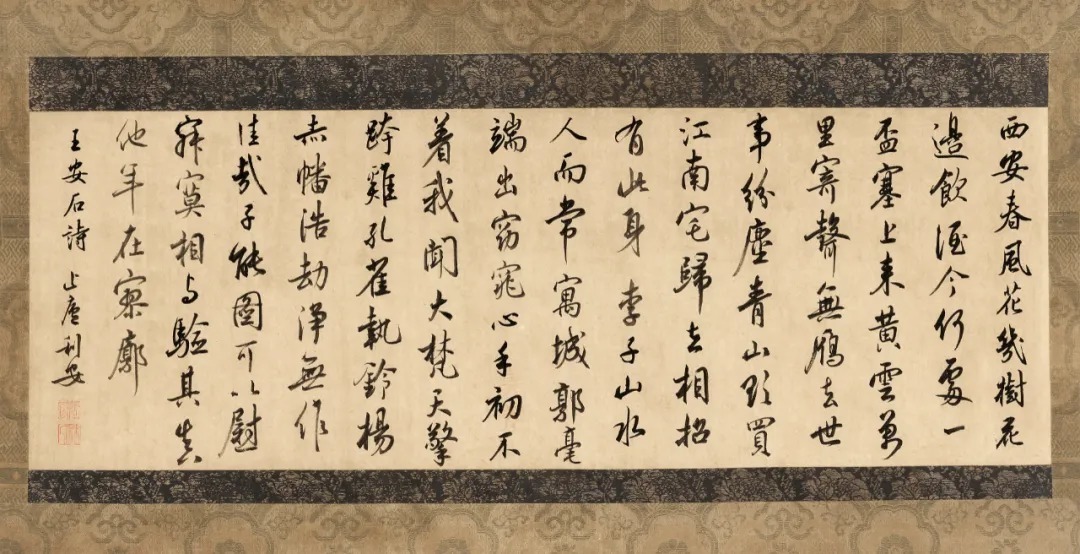 西安春風花幾樹花
邊飲酒今何處一
盃塞上來黃雲萬
里寄聲無鴈去世
事紛塵青山欲買
江南宅歸去相招
有此身 李子山水
人而常寓城郭毫
端出窈窕心手初不
着我聞大梵天擎
跨雞孔雀執鈴楊
赤幡浩劫淨無作
佳哉子能圖可以慰
寂寞相与驗其真
他年在寥廓
王安石詩